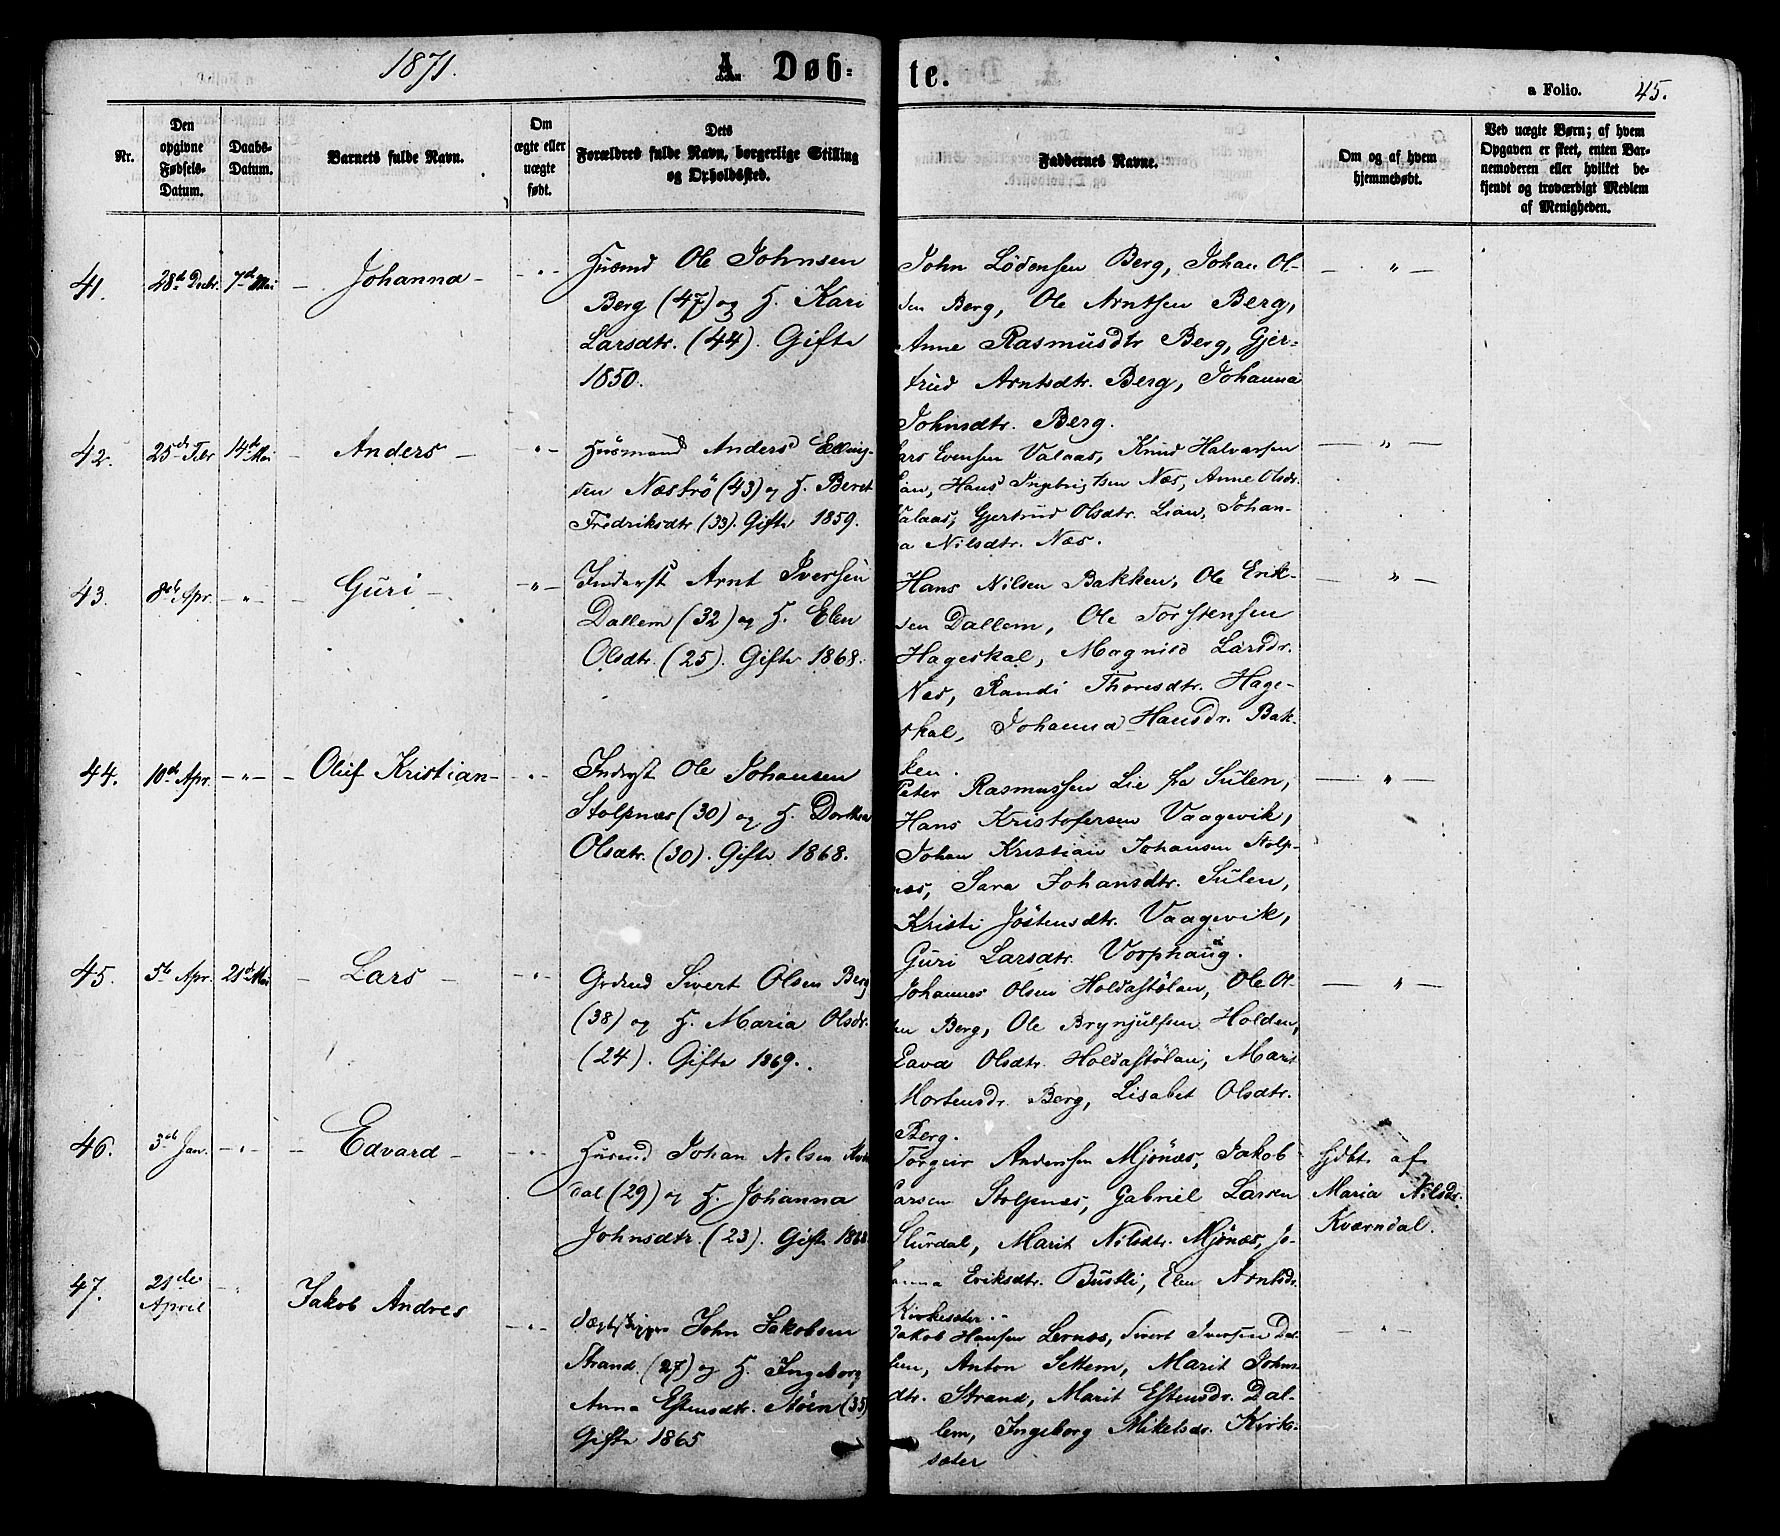 1871.
A Døb-
te.
a Folio. 45.
Nr.
Den opgivne Fødsels-Datum.
Daabs-Datum.
Barnets fulde Navn.
Om ægte eller uægte født.
Dets Forældres fulde Navn, borgerlige Stilling og Opholdssted.
Faddernes Navne.
Om og af hvem hjemmedøbt.
Ved uægte Børn; af hvem Opgaven er skeet, enten Barnemoderen eller hvilket bekjendt og troværdigt Medlem af Menigheden.
41. 28de Decbr. 7de Mai - Johanna - - " -
Husmd Ole Johnsen
Berg (47) og H. Kari
Larsdtr. (44). Gifte
1850.
John Lødensen Berg, Johan Ol-
sen Berg, Ole Arntsen Berg,
Anne Rasmusdtr Berg, Gjer-
trud Arntsdtr. Berg, Johanna
Johnsdtr. Berg.
— " —
42. 25de Febr 14de Mai - Anders - - " -
Husmand Anders Elling-
sen Næstrø (43) og H. Beret
Fredriksdtr (33). Gifte 1859.
Lars Evensen Valaas, Knud Halvorsen
Lian, Hans Ingebrigtsen Næs, Anne Olsdr.
Valaas, Gjertrud Olsdtr. Lian, Johan-
na Nilsdtr. Næs.
— " —
43. 8de Apr. - " - - Guri - - " -
Inderst Arnt Iversen
Dallem (32) og H. Elen
Olsdtr. (25). Gifte 1868.
Hans Nilsen Bakken, Ole Erik-
sen Dallem, Ole Torstensen
Hageskal, Magnild Larsdr.
Nes, Randi Thoresdtr. Hage-
skal, Johanna Hansdr. Bak-
ken.
— " —
44. 10de Apr. - " - - Oluf Kristian - - " -
Inderst Ole Johansen
Stolpnæs (30) og H. Dorthea
Olsdtr. (30). Gifte 1868.
Peter Rasmussen Lie fra Sulen,
Hans Kristofersen Vaagevik,
Johan Kristian Johansen Stolp-
næs, Sara Johansdtr. Sulen,
Kristi Jostensdtr. Vaagevik,
Guri Larsdtr. Vorphaug.
— " —
45. 5te Apr. 21de Mai - Lars - - " -
Grdmd Sivert Olsen Berg
(38) og H. Maria Olsdr.
(24). Gifte 1869.
Johannes Olsen Holdastølan, Ole Ol-
sen Berg, Ole Brynjulfsen Holden,
Olsdtr. Holdastølan, Marit
Mortensdr. Berg, Lisabet Olsdtr.
Berg.
— " —
46. 3de Jan. - " - - Edvard - - " -
Husmd Johan Nilsen Kvern
dal (29) og H. Johanna
Johnsdtr. (23). Gifte 1868
Torgeir Andersen Mjønæs, Jakob
Larsen Stolpnæs, Gabriel Larsen
Slurdal, Marit Nilsdtr. Mjønæs, Jo-
hanna Eriksdtr. Bustli, Elen Arntsdr.
Kirkesæter.
hjdbt. af
Maria Nilsdr.
Kværndal.
47. 21de April " Jakob Andres - " -
John Jakobsen
Strand (27) og H. Ingeborg
Anna Estensdtr. Støen (33)
Gifte 1865
Jakob Hansen Lernæs, Sivert Iversen Dal-
lem, Anton Settem, Marit Johns-
dtr. Strand, Marit Estensdr. Dal-
lem, Ingeborg Mikelsdr. Kirke-
sæter
- " -